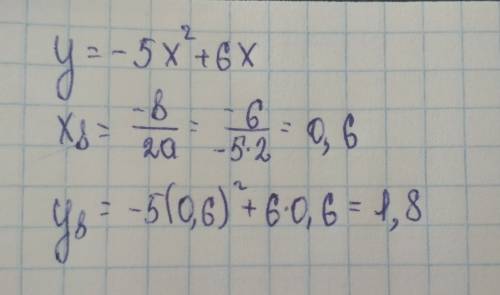 y = -5x² + 6x
xв = -в/2a = -6/-5·2 = 0,6
yв = -5(0,6)² + 6·0,6 = 1,8